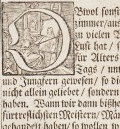 Btwol sonst
zimmer/aus
zu vielen
Lust hat/
für Alters
Tags/ und
und Jungfern gewesen/ so di
nicht allein geliebet/ sondern
haben. Wann wir dann bißhe
fürtrefflichsten Meistern/ Ma
gehandelt haben/ so wollen